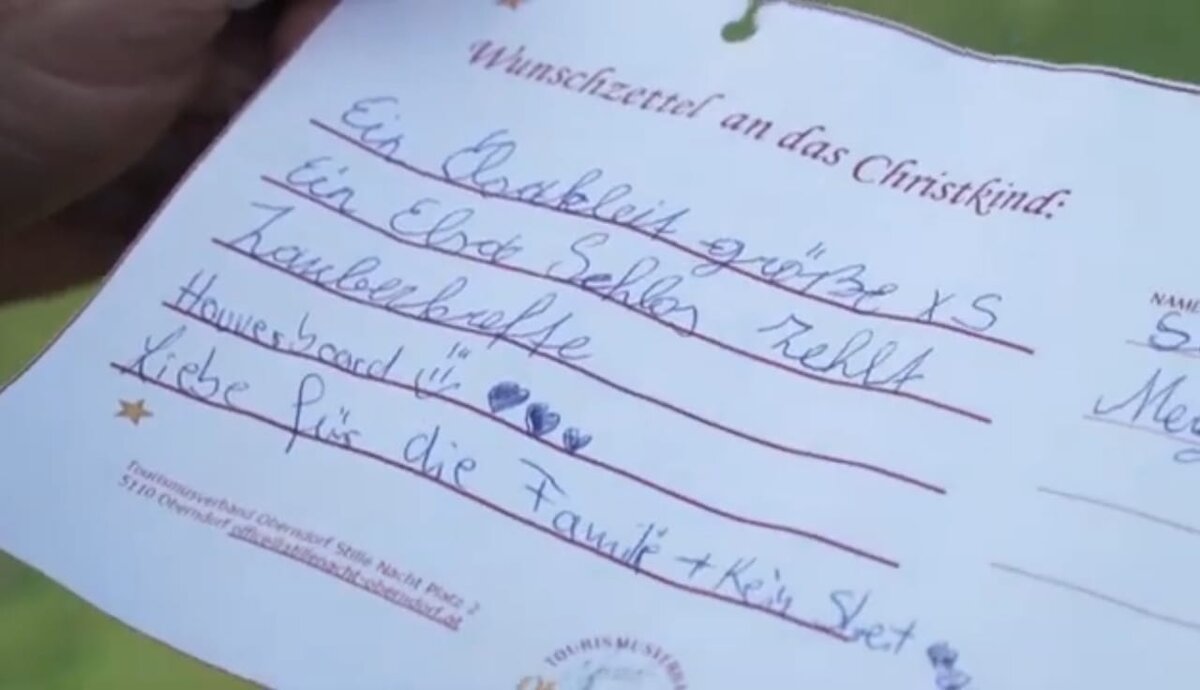 Wunschzettel an das Christkind:
Ein Elsakleit größe XS
Ein Elsa Schlos Zehlt
Zauberkrefte
Houverboard
Liebe für die Familie + Kein Streit
Tourismusverband Oberndorf Stille Nacht Platz 2
5110 Oberndorf office@stillenacht-oberndorf.at
TOURISMUSVERB
NAME
S
Mey